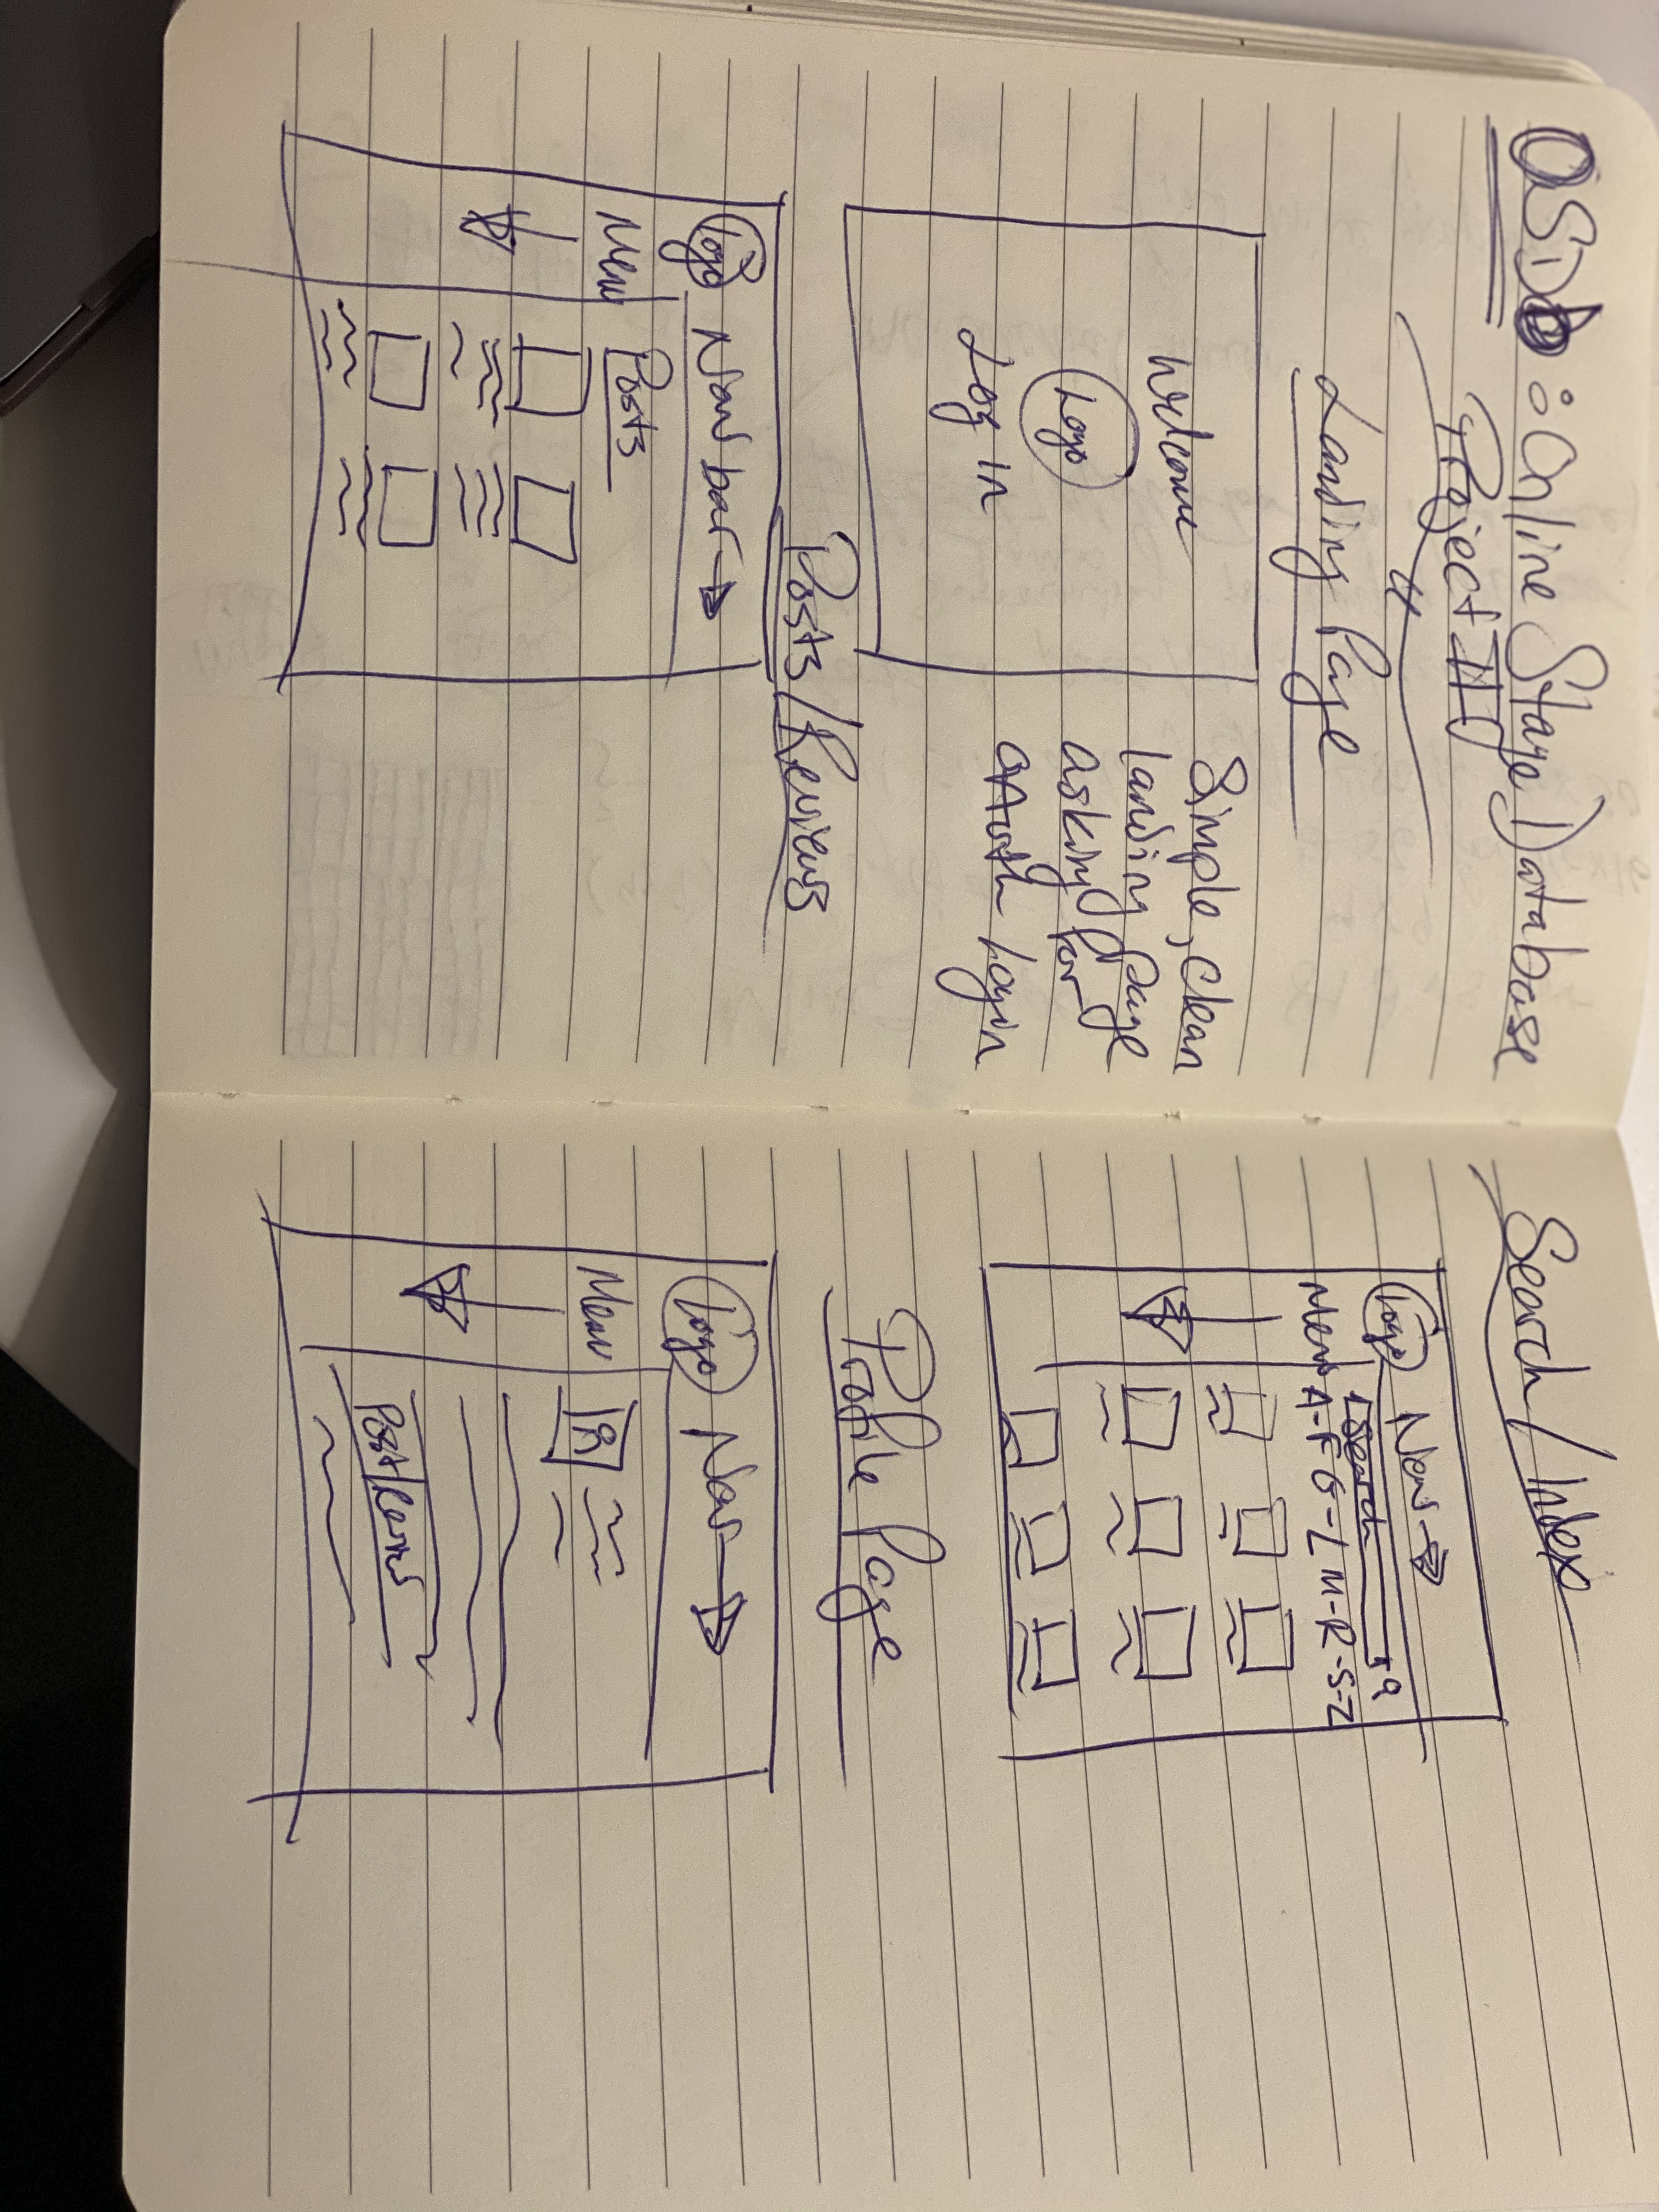 OSDb : Online Stage Database
Project III
Landing Page
Welcome
Logo
Log in
Simple, Clean
landing page
asking for
OAuth Login
Posts/Reviews
Logo Nav bar →
Menu
Posts
Search/Index
Logo Nav →
Search
Menu A-F G-L M-R-S-Z
Profile Page
Logo Nav →
Menu
Post/Reviews